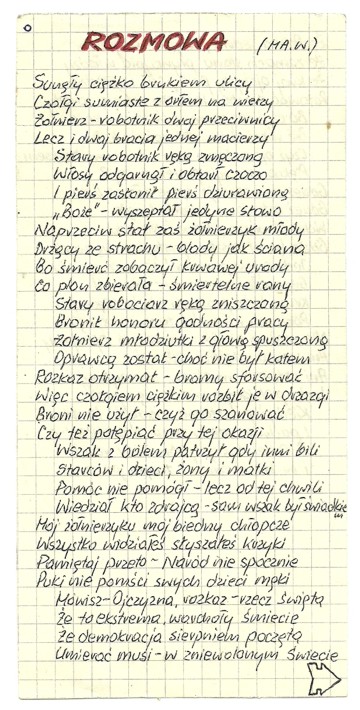 ROZMOWA (MA.W.)
Sunęły ciężko brukiem ulicy
Czołgi sumiaste z orłem na wieży
Żołnierz - robotnik dwaj przeciwnicy
Lecz i dwaj bracia jednej macierzy
Stary robotnik ręką zmęczoną
Włosy odgarnął i obtarł czoło
I pierś zasłonił piersią dziurawioną
„Boże" - wyszeptał jedyne słowo
Naprzeciw stał zaś żołnierzyk młody
Drżący ze strachu - blady jak ściana
Bo śmierć zobaczył krwawej urody
Co plon zbierała - śmiertelne rany
Stary robociarz ręką zniszczoną
Bronił honoru godności pracy
Żołnierz młodziutki z głową spuszczoną
Oprawcą został - choć nie był katem
Rozkaz otrzymał - bramy sforsować
Więc czołgiem ciężkim rozbił je w drzazgi
Broni nie użył - czyż go szanować
Czy też potępiać przy tej okazji
Wszak z bólem patrzył gdy inni bili
Starców i dzieci, żony i matki
Pomóc nie pomógł - lecz od tej chwili
Wiedział kto zdrajcą - sam wszak był świadkiem
Mój żołnierzyku mój biedny chłopcze
Wszystko widziałeś słyszałeś krzyki
Pamiętaj przeto - Naród nie spocznie
Póki nie pomści swych dzieci męki
Mówisz - Ojczyzna, rozkaz - rzecz święta
Że to ekstrema, warchoły śmiecie
Że demokracja sierpniem poczęta
Umierać musi - w zniewolonym świecie